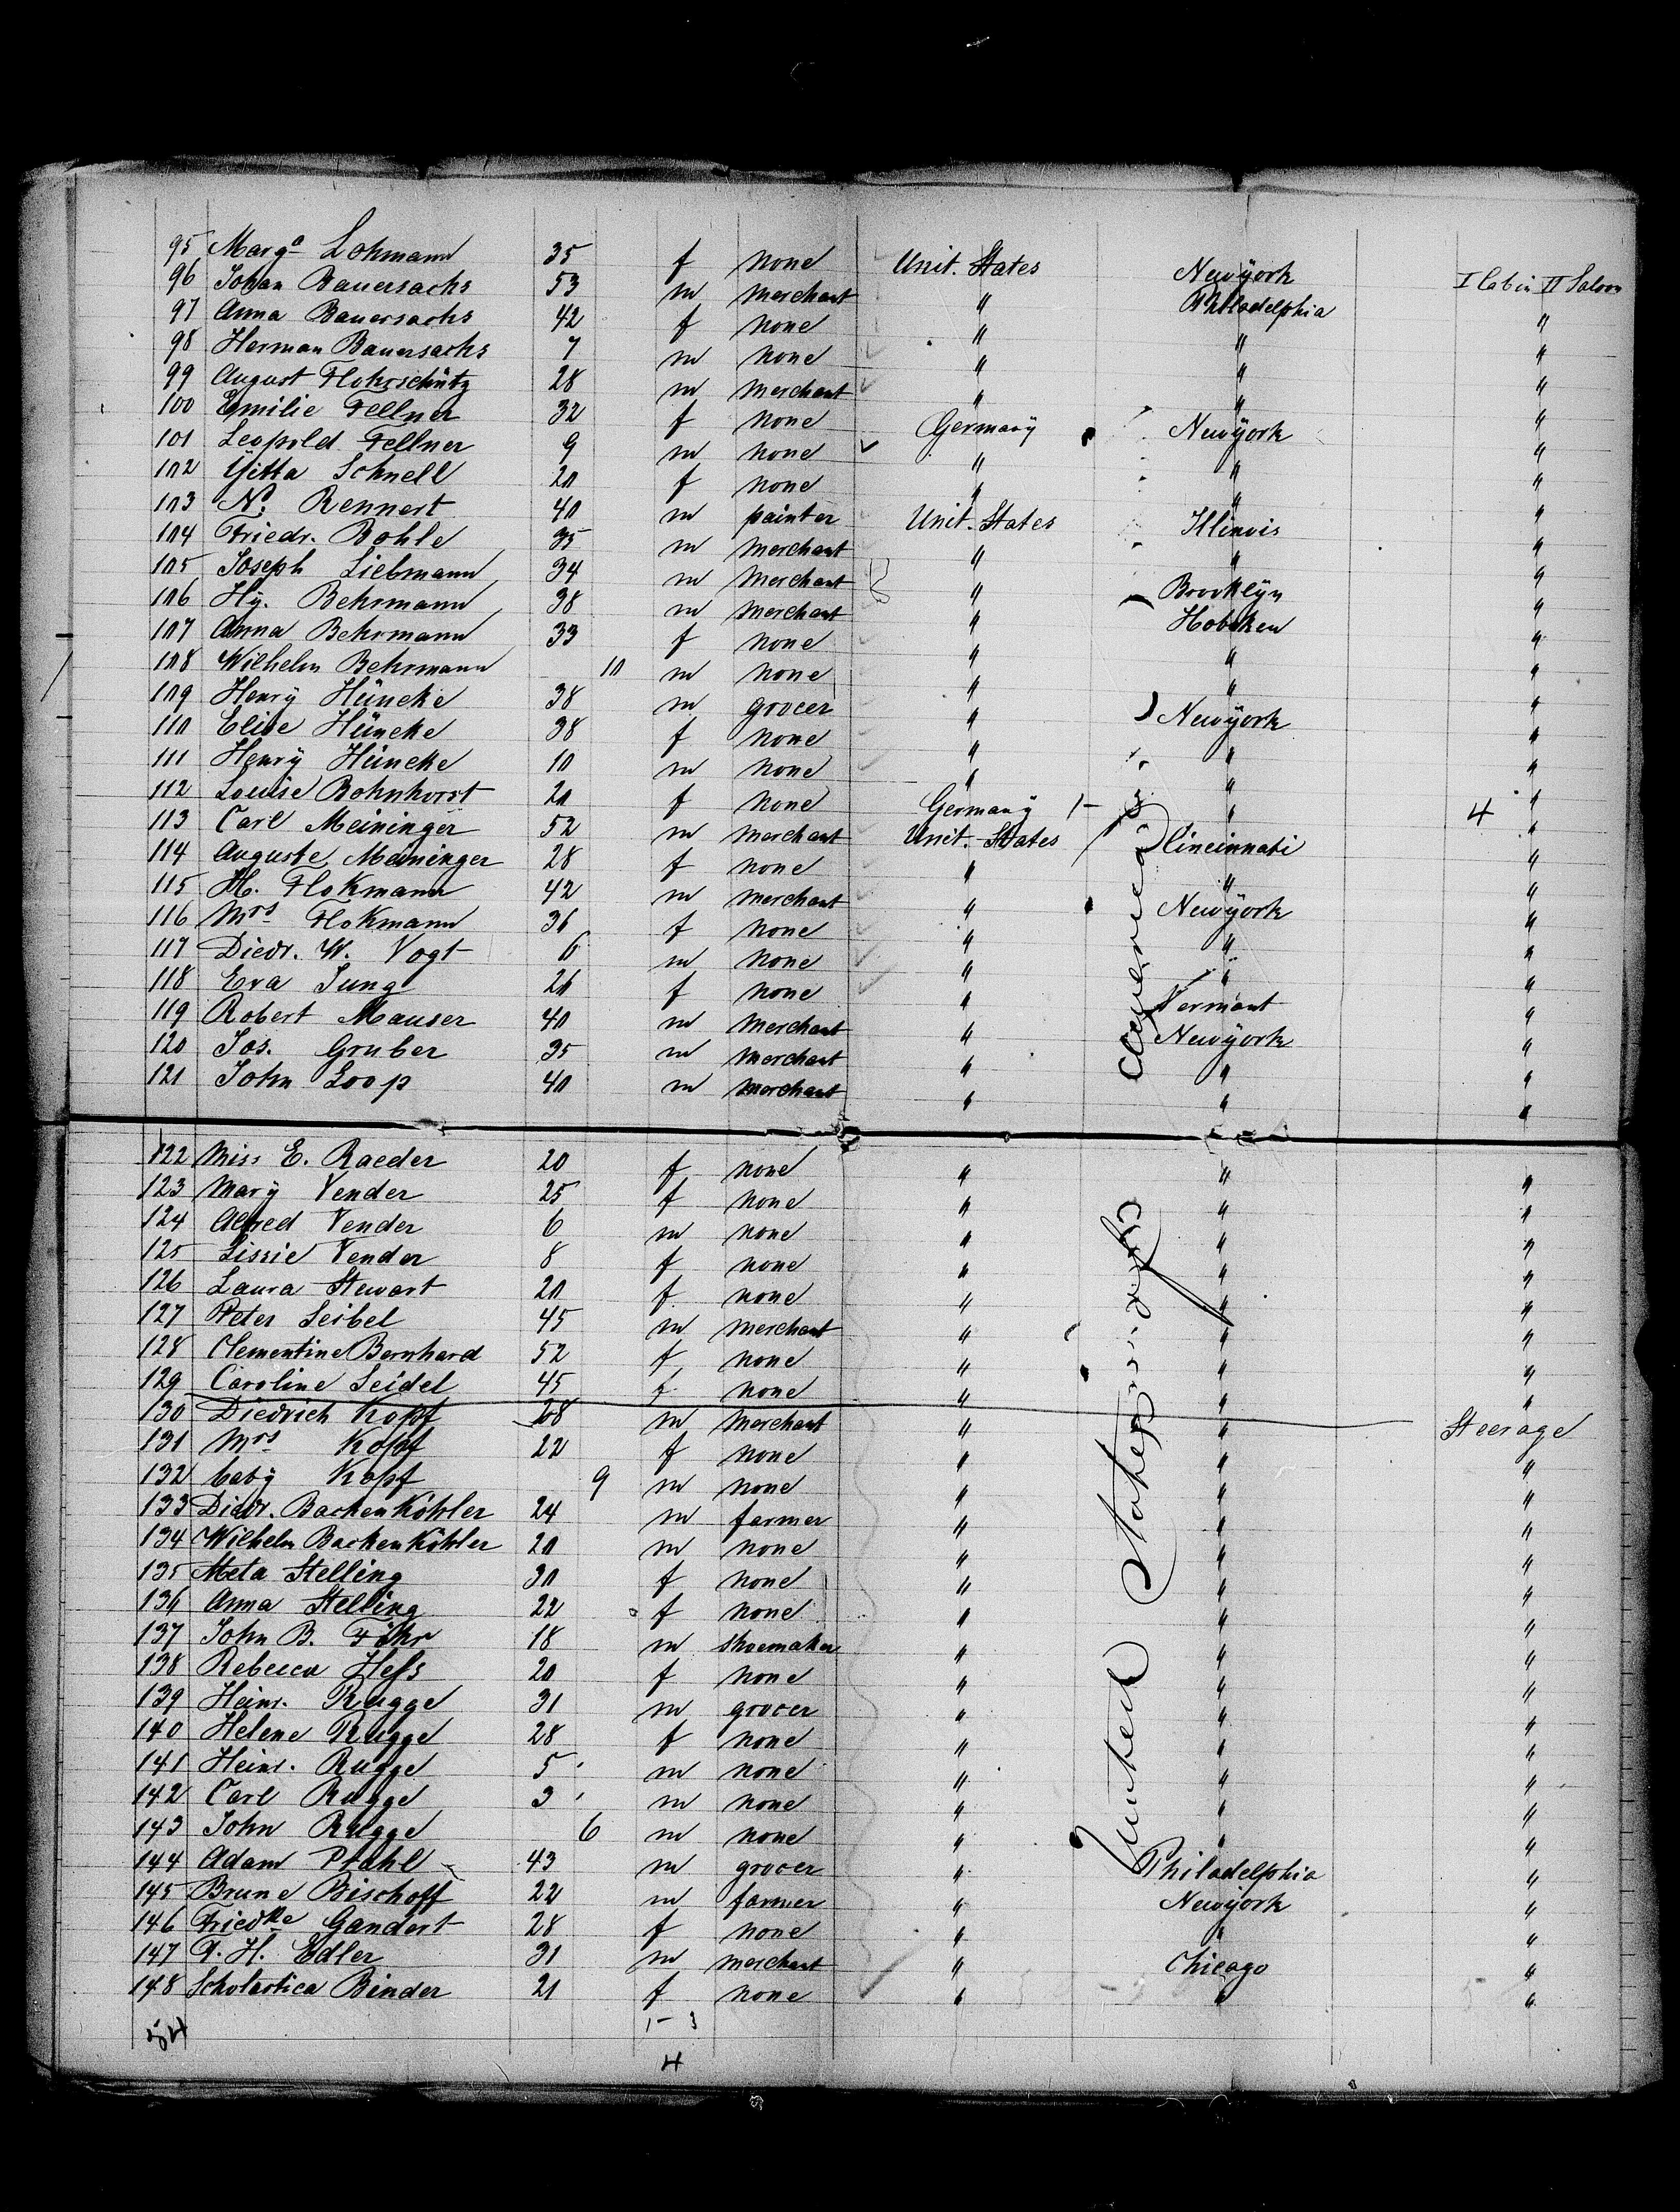 95 Marga Lohmann 35 f none Unit. States Newÿork I Cabin II Saloon
96 Johan Bauersachs 53 m merchant " Philadelphia "
97 Anna Bauersachs 42 f none " " "
98 Herman Bauersachs 7 m none " " "
99 August Flohrschütz 28 m merchant " " "
100 Emilie Fellner 32 f none Germanÿ Newÿork "
101 Leopold Fellner 9 m none " " "
102 Gitta Schnell 20 f none " " "
103 N. Rennert 40 m painter Unit. States Illinois "
104 Friedr. Bohle 35 m merchant " " "
105 Joseph Liebmann 34 m merchant " Brooklÿn "
106 Hÿ. Behrmann 38 m merchant " Hoboken "
107 Anna Behrmann 33 f none " " "
108 Wilhelm Behrmann 10 m none " " "
109 Henrÿ Hüncke 38 m grocer " Newÿork "
110 Elise Hüncke 38 f none " " "
111 Henrÿ Hüncke 10 m none " " "
112 Louise Bohnhorst 20 f none Germanÿ 1- " 4 "
113 Carl Meininger 52 m merchant Unit. States Cincinnati "
114 Auguste Meininger 28 f none " " "
115 H. Flokmann 42 m merchant " Newÿork "
116 Mrs Flokmann 36 f none " " "
117 Diedr. W. Vogt 6 m none " " "
118 Eva Jung 26 f none " Vermont "
119 Robert Mauser 40 m merchant " Newÿork "
120 Jos. Gruber 35 m merchant " " "
121 John Loop 40 m merchant " " "
122 Miss E. Raeder 20 f none " " "
123 Marÿ Vender 25 f none " " "
124 Alfred Vender 6 m none " " "
125 Lissie Vender 8 f none " " "
126 Laura Stewart 20 f none " " "
127 Peter Seibel 45 m merchant " " "
128 Clementine Bernhard 52 f none " " "
129 Caroline Seidel 45 f none " " "
130 Diedrich Kopf 28 m merchant " " Steerage
131 Mrs Kopf 22 f none " " "
132 babÿ Kopf 9 m none " " "
133 Diedr. Backenköhler 24 m farmer " " "
134 Wilhelm Backenköhler 20 m none " " "
135 Meta Stelling 30 f none " " "
136 Anna Stelling 22 f none " " "
137 John B. Föhr 18 m shoemaker " " "
138 Rebecca Hess 20 f none " " "
139 Heinr. Rugge 31 m grocer " " "
140 Helene Rugge 28 f none " " "
141 Heinr. Rugge 5 m none " " "
142 Carl Rugge 3 m none " " "
143 John Rugge 6 m none " " "
144 Adam Pfahl 43 m grocer " Philadelphia "
145 Brune Bischoff 22 m farmer " Newÿork "
146 Friedke Gandert 28 f none " " "
147 F. H. Edler 31 m merchant " Chicago "
148 Scholastica Binder 21 f none " " "
54 1- 3
4
United States